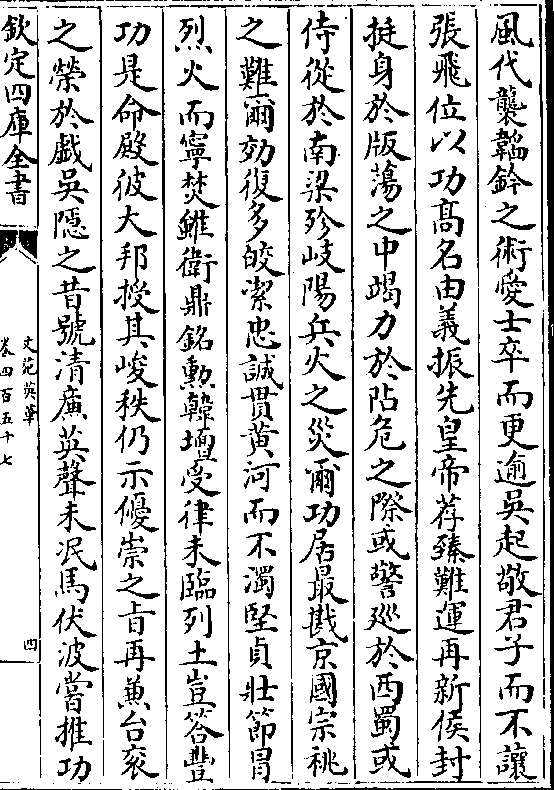 風代襲韜鈐之術愛士卒而更逾吳起敬君子而不讓
張飛位以功髙名由義振先皇帝荐臻難運再新侯封
挺身於版蕩之中竭力於阽危之際或警廵於西蜀或
侍從於南梁殄岐陽兵火之災爾功居最戡京國宗祧
之難爾効復多皎潔忠誠貫黄河而不濁堅貞壯節冐
烈火而寧焚雖衛鼎銘勲韓壇受律未臨列土豈答豐
功是命殿彼大邦授其峻秩仍示優崇之㫖再兼台衮
之榮於戱吳隱之昔號清廣英聲未泯馬伏波嘗推功
欽定四庫全書
文苑英華
卷四百五十七
四